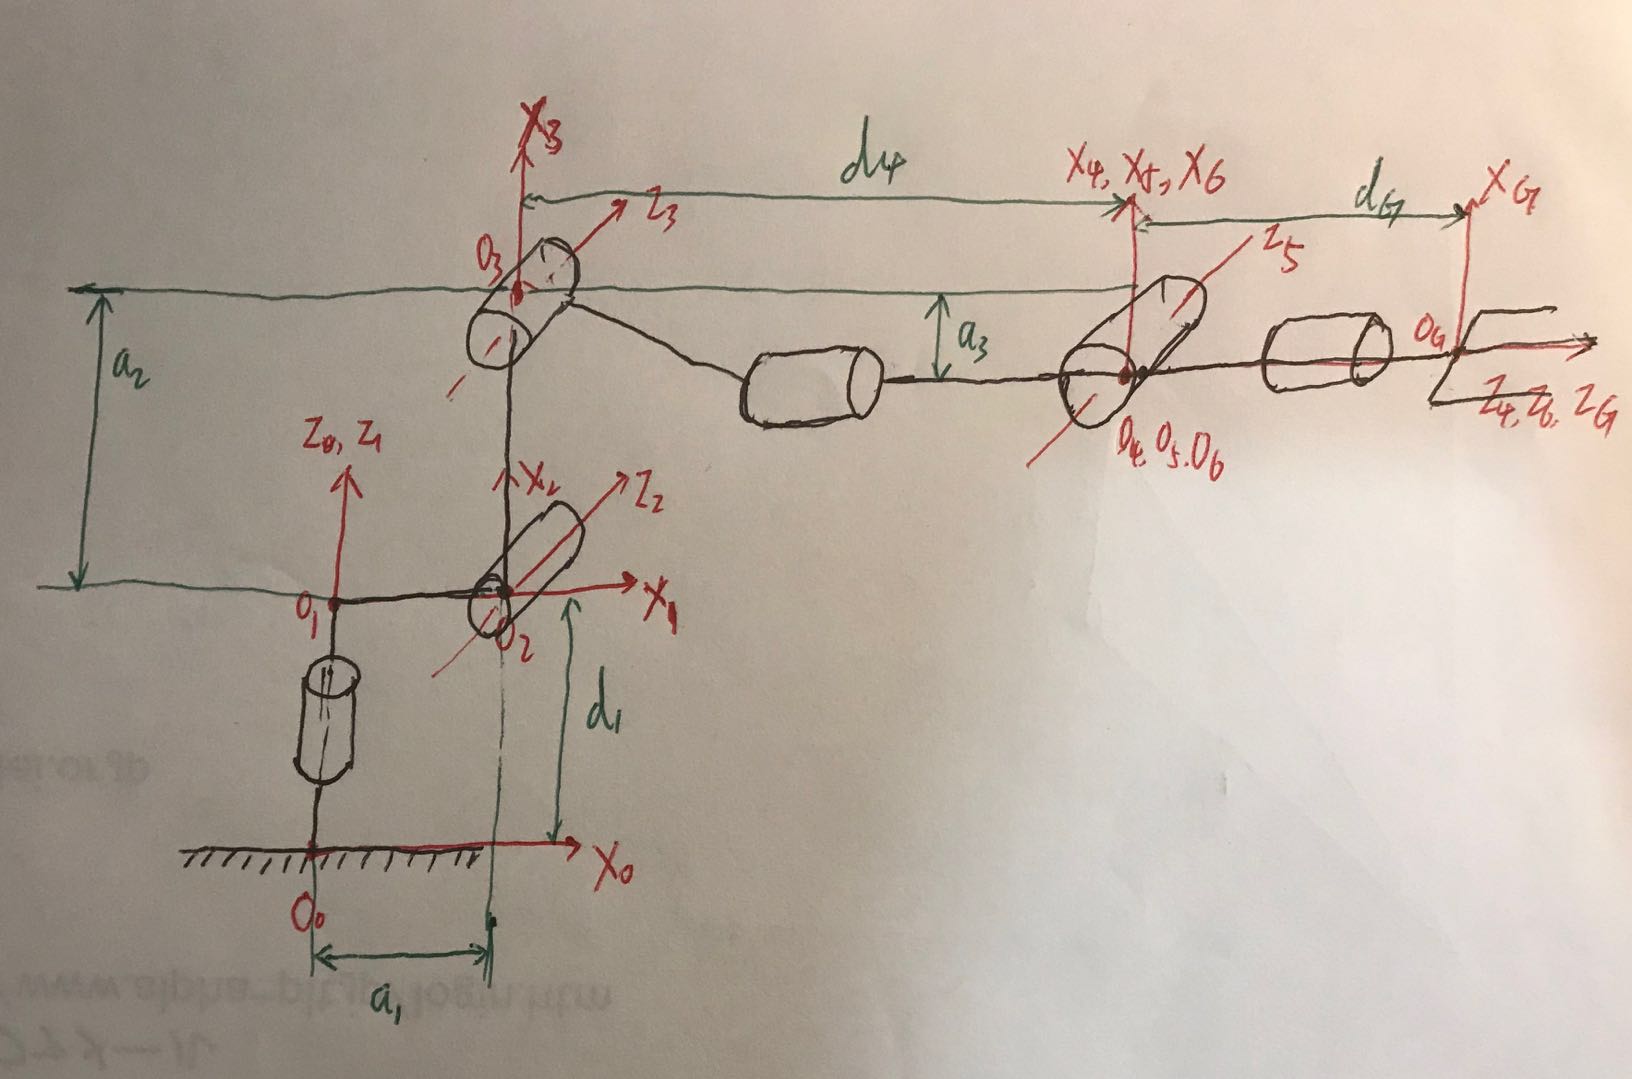 X3
d4
X4, X5, X6
dG
XG
Z3
O3
Z5
a2
a3
OG
Z4, Z6, ZG
O4, O5, O6
Z0, Z1
X2
Z2
O1
O2
X1
d1
X0
O0
a1